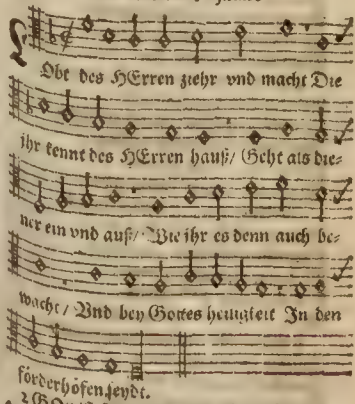 LObt des HErren ziehr vnd macht Die
ihr kennt des HErren hauß/ Geht als die⸗
ner ein vnd auß/ Wie ihr es denn auch be⸗
wacht/ Vnd bey Gottes heiligkeit In den
förderhöfen seydt.